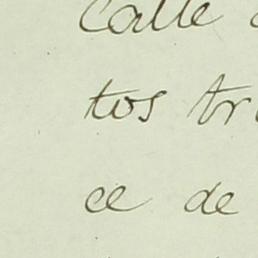 Calle
tos
ce de